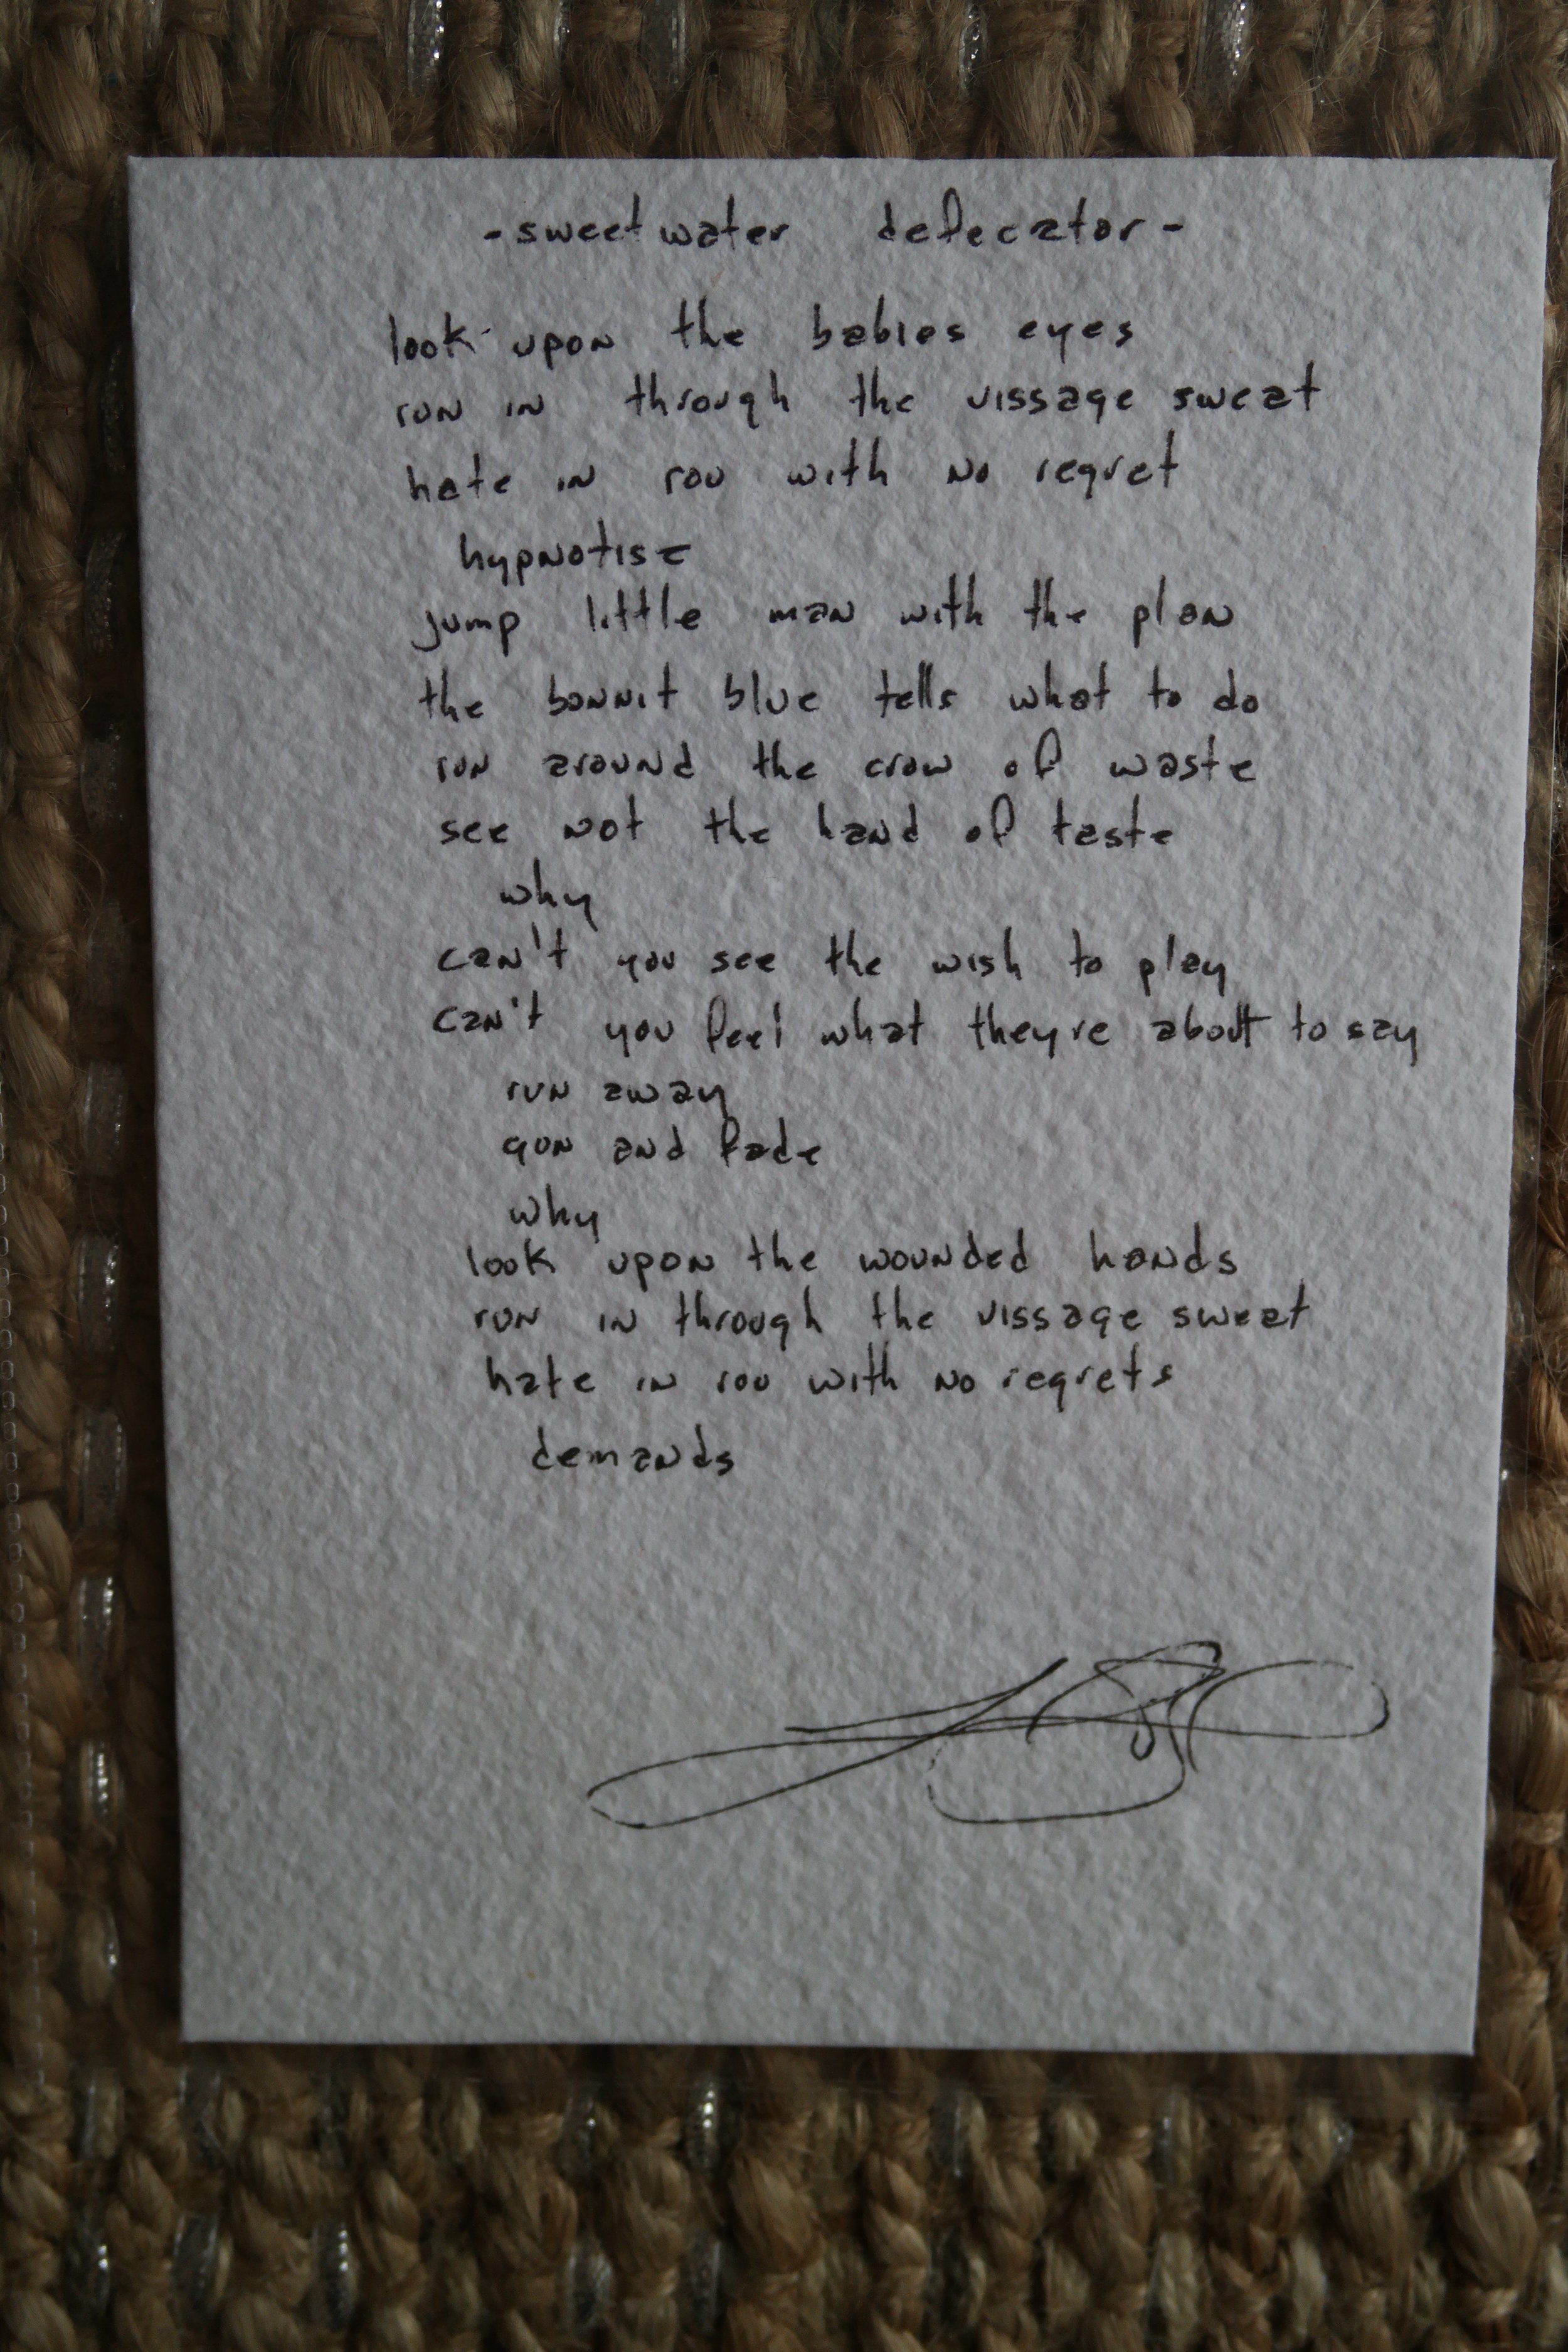 -sweet water defecator-
look upon the babies eyes
run in through the vissage sweat
hate in rou with no regret
hypnotise
jump little man with the plan
the bonnit blue tells what to do
run around the craw of waste
see not the hand of taste
why
can't you see the wish to play
can't you feel what they're about to say
run away
gun and fade
why
look upon the wounded hands
run in through the vissage sweat
hate in rou with no regrets
demands